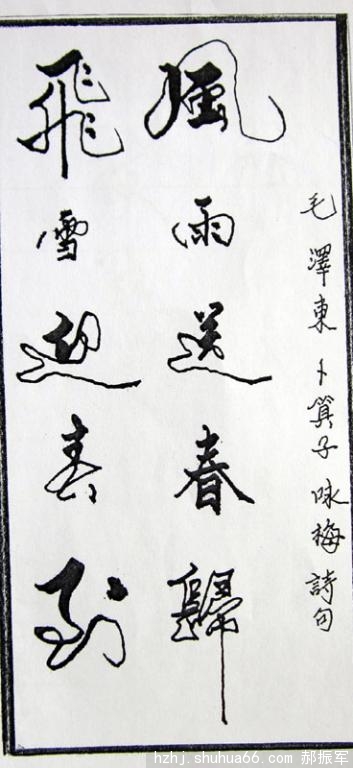 毛澤東卜算子咏梅詩句
風雨送春歸
飛雪迎春到
hzhj.shuhua66.com 郝振军